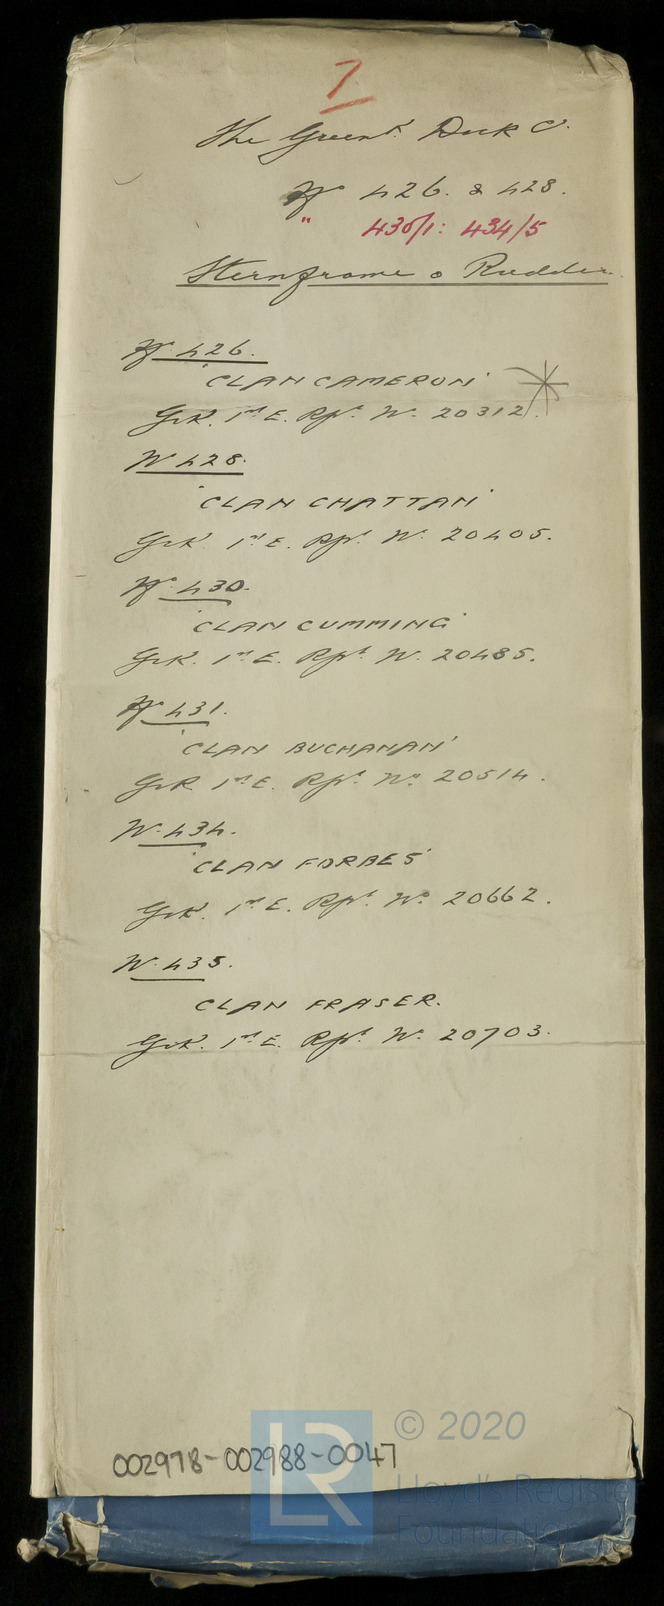 7
The Greenk. Dock Co.
No 426. & 428.
" 430/1: 434/5
Sternframe & Rudder.
No 426.
'CLAN CAMERON'
Grk. 1st E. Rpt. No. 20312.
No 428.
'CLAN CHATTAN'
Grk. 1st E. Rpt. No. 20405.
No 430.
'CLAN CUMMING'
Grk. 1st E. Rpt. No. 20485.
No 431.
'CLAN BUCHANAN'
Grk. 1st E. Rpt. No. 20514.
No. 434.
'CLAN FORBES'
Grk. 1st E. Rpt. No. 20662.
No. 435.
CLAN FRASER.
Grk. 1st E. Rpt. No. 20703.
002978-002988-0047
LR
© 2020
Lloyd's Register
Foundation